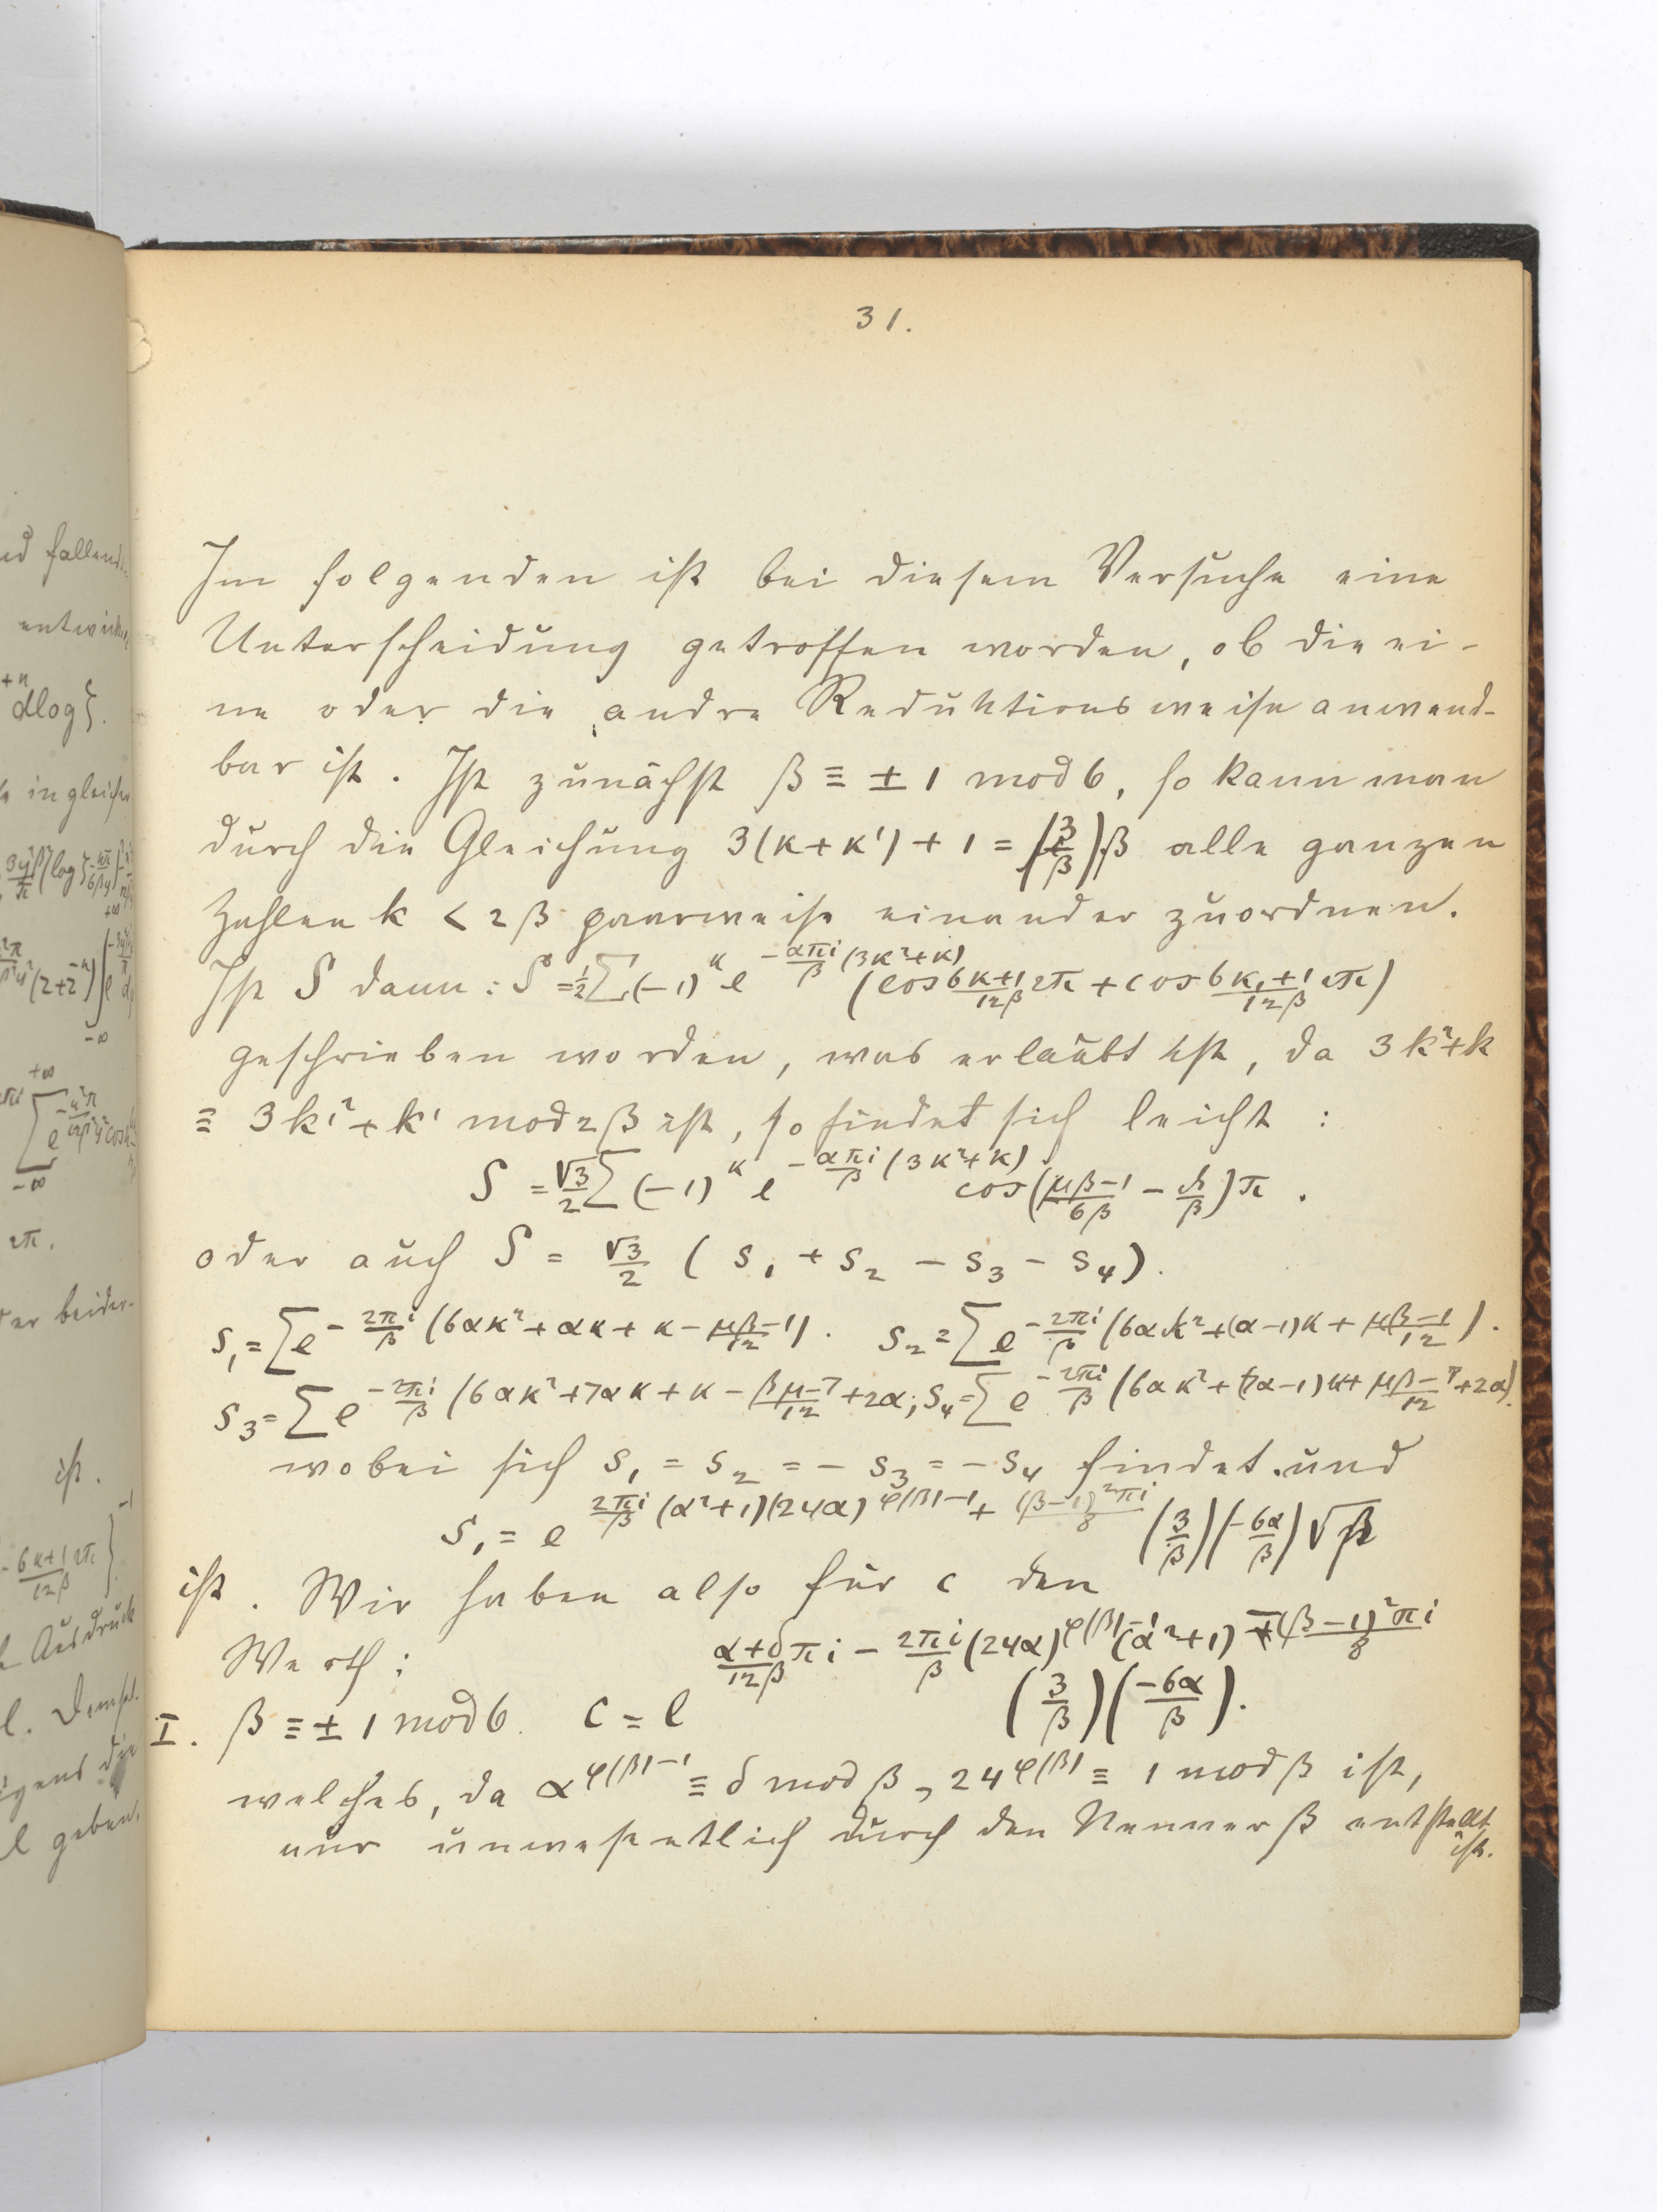 31.
Im folgenden ist bei diesem Versuche eine
Unterscheidung getroffen worden, ob die ei-
ne oder die andre Reduktionsweise anwend-
bar ist. Ist zunächst β ≡ ± 1 mod 6, so kann man
durch die Gleichung 3(κ+κ')+1 = (3/β)β alle ganzen
Zahlen k < 2β paarweise einander zuordnen.
Ist S dann: S = 1/2 Σ(-1)^κ e^{-απi/β (3κ²+κ)} (cos (6κ+1)/(12β) 2π + cos (6κ₁+1)/(12β) 2π)
geschrieben worden, was erlaubt ist, da 3k²+k
≡ 3k'²+k' mod 2β ist, so findet sich leicht :
S = √3/2 Σ(-1)^κ e^{-απi/β (3κ²+κ)} cos((μβ-1)/(6β) - k/β)π .
oder auch S = √3/2 ( s₁ + s₂ - s₃ - s₄).
s₁ = Σe^{-2πi/β (6ακ²+ακ+κ-(μβ-1)/12)}. s₂ = Σe^{-2πi/β (6ακ²+(α-1)κ+(μβ-1)/12)}.
s₃ = Σe^{-2πi/β (6ακ²+7ακ+κ-(βμ-7)/12+2α}; s₄ = Σe^{-2πi/β (6ακ²+(7α-1)κ+(μβ-7)/12+2α)}.
wobei sich s₁ = s₂ = - s₃ = - s₄ findet. und
s₁ = e^{2πi/β (α²+1)(24α)^{φ(β)-1} + (β-1)²πi/8} (3/β)(-6α/β)√β
ist. Wir haben also für c den
Werth:
I. β ≡ ± 1 mod 6. C = e^{(α+δ)/(12β) πi - 2πi/β (24α)^{φ(β)-1}(α²+1) - (β-1)²πi/8} (3/β)(-6α/β).
welches, da α^{φ(β)-1} ≡ δ mod β, 24^{φ(β)} ≡ 1 mod β ist,
nur unwesentlich durch den Nenner β entstellt
ist.